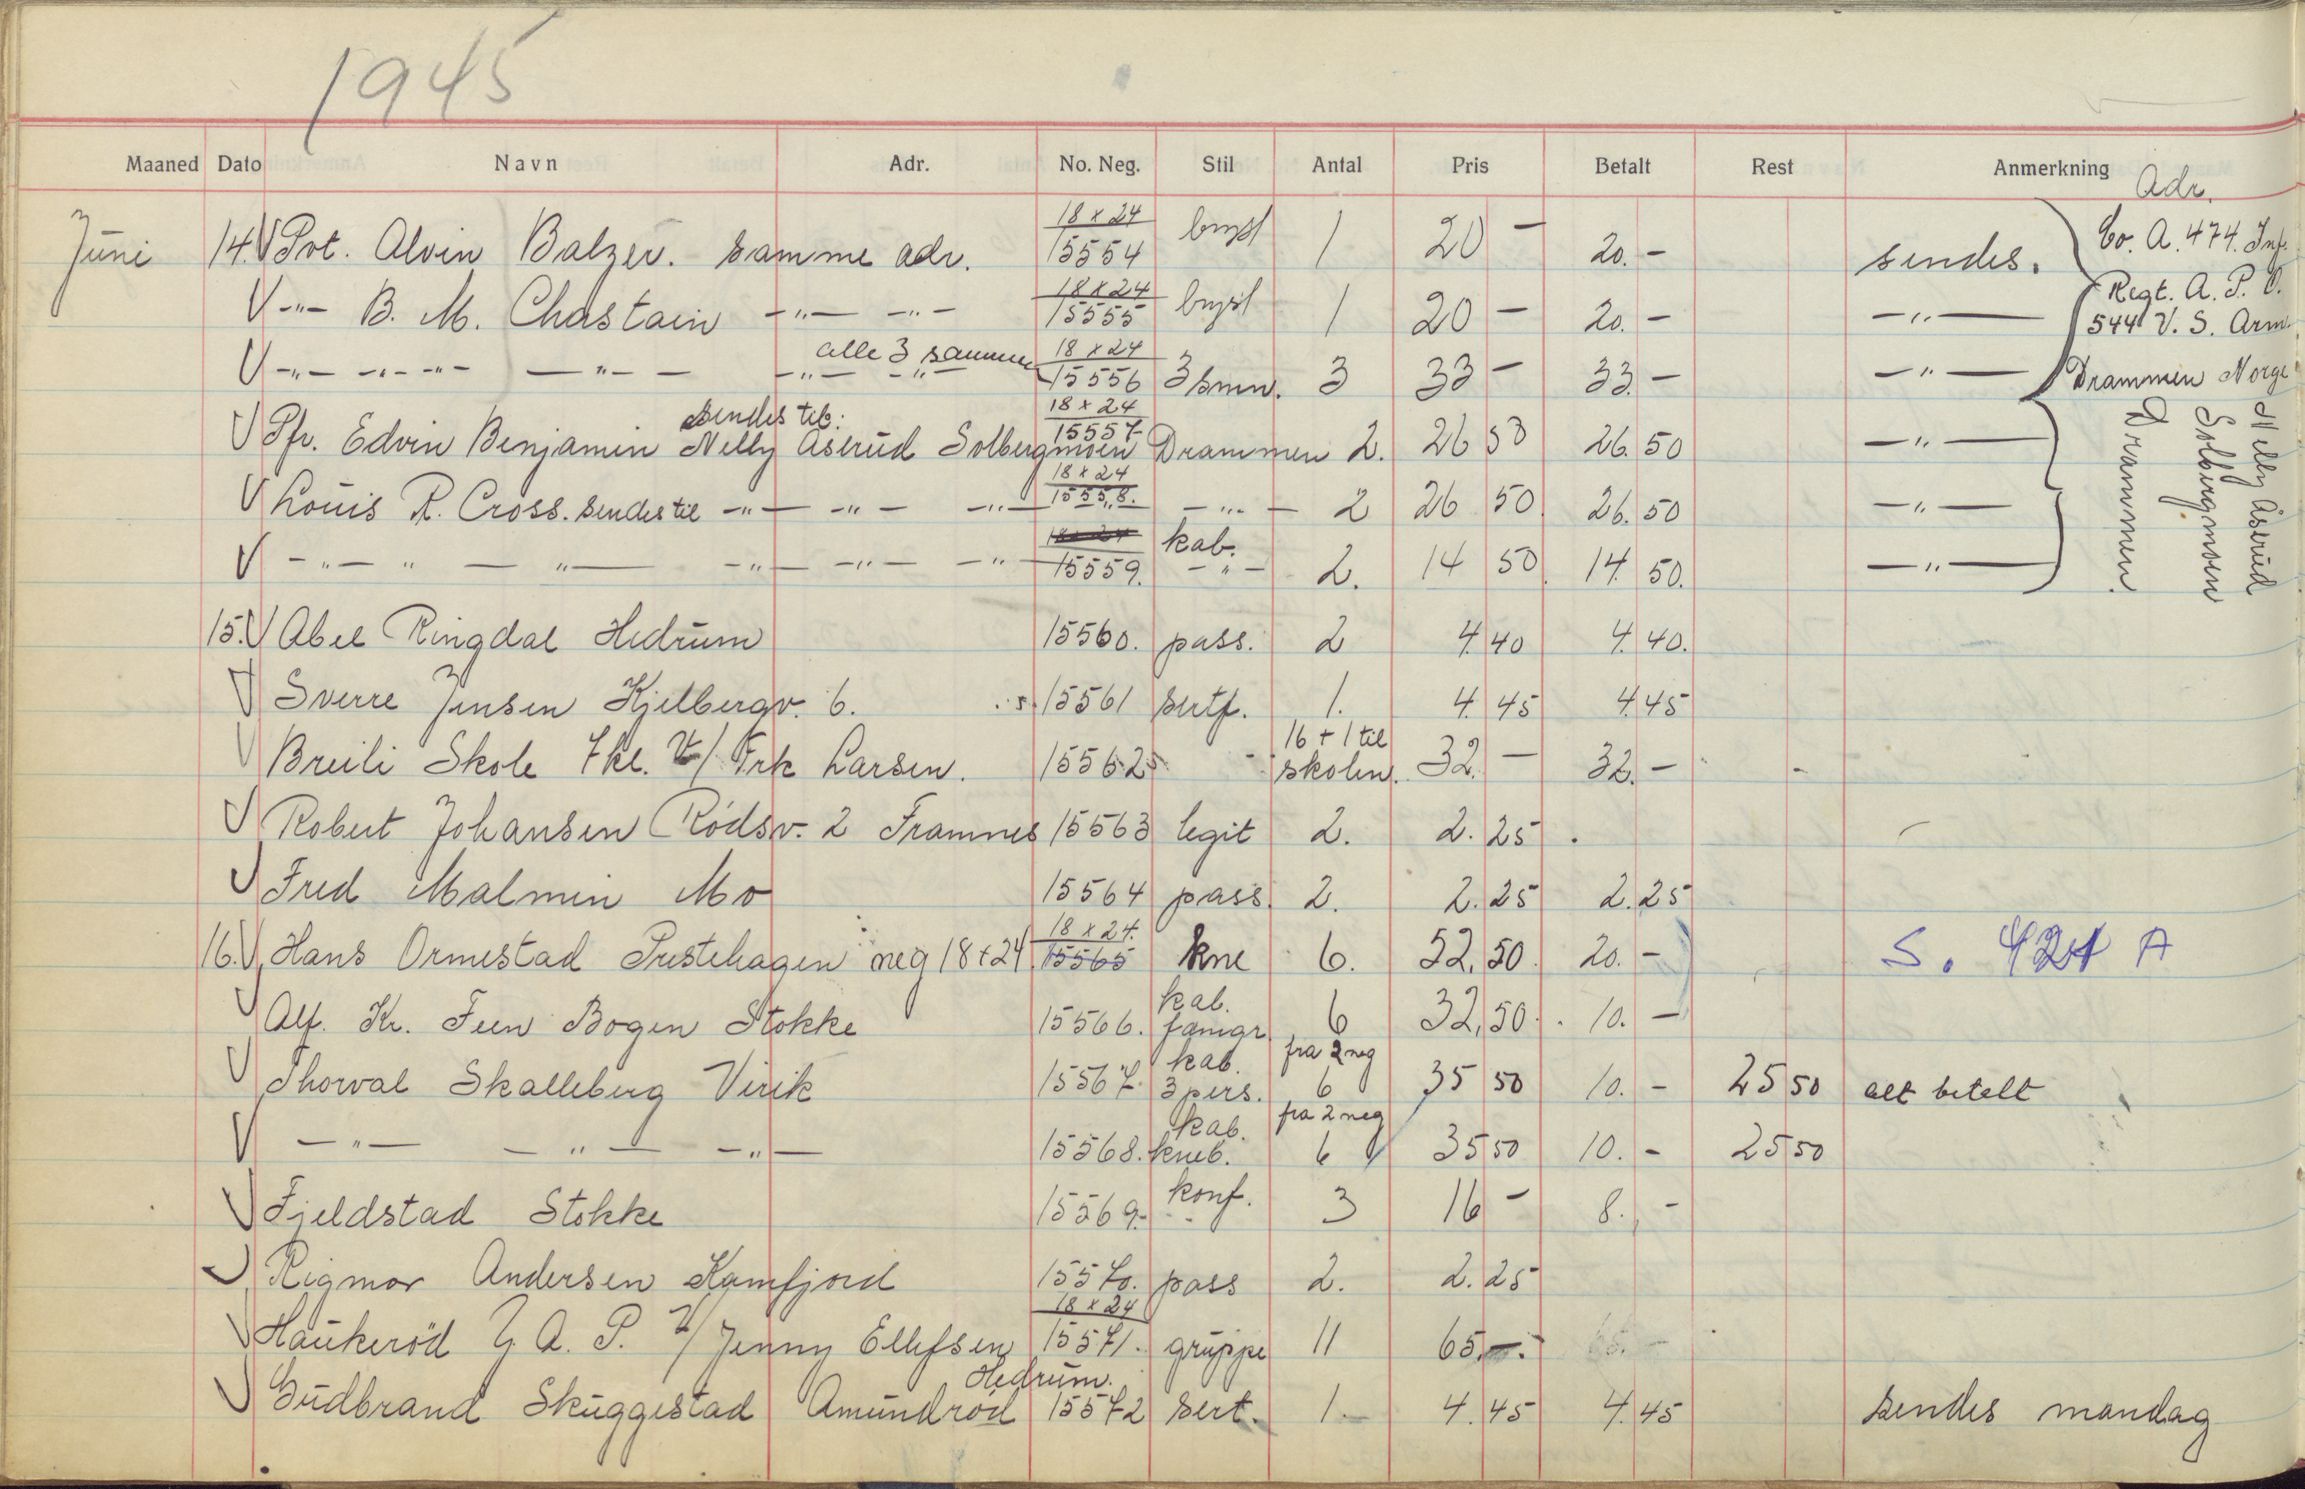 1945
Maaned Dato Navn Adr. No. Neg. Stil Antal Pris Betalt Rest Anmerkning
Adr.
Juni 14. Pvt. Alvin Balzer. samme adr. 18 x 24 15554 bryst 1 20 - 20. - sendes. Co. A. 474. Inf.
-"- B. M. Chastain -"- -"- 18 x 24 15555 bryst 1 20 - 20. - -"- Regt. A. P. O. 544 U. S. Arm.
-"- -"- -"- -"- alle 3 sammen -"- -"- 18 x 24 15556 3 smn. 3 33 - 33. - -"- Drammen Norge
Pfr. Edvin Benjamin sendes til: Nelly Åserud Solbergmoen Drammen 18 x 24 15557 2. 26 50 26. 50 -"-
Louis R. Cross. sendes til -"- -"- -"- 18 x 24 15558. -"- 2 26 50 26. 50 -"-
-"- " -"- -"- -"- -"- 18 x 24 15559. kab. -"- 2. 14 50 14. 50. -"-
Nelly Åserud
Solbergmoen
Drammen.
15. Abel Ringdal Hedrum 15560. pass. 2 4. 40 4. 40.
Sverre Jensen Kjelbergv. 6. 15561 sertf. 1. 4. 45 4. 45
Breili Skole 7 kl. v/ Frk Larsen. 15562 16 + 1 til skolen. 32. - 32. - -
Robert Johansen Rødsv. 2 Framnes 15563 legit 2. 2. 25
Fred Malmin Mo 15564 pass. 2. 2. 25 2. 25
16. Hans Ormestad Prestehagen neg 18+24 18 x 24. 15565 kne 6. 52, 50 20. - S. 421 A
Alf. Kr. Feen Bogen Stokke 15566. kab. famgr. 6 32, 50 10. -
Thorval Skalleberg Virik 15567. kab. 3 pers. fra 2 neg 6 35 50 10. - 25 50 alt betalt
-"- -"- -"- 15568. kab. kneb. fra 2 neg 6 35 50 10. - 25 50
Fjeldstad Stokke 15569. konf. 3 16 - 8. -
Rigmor Andersen Kamfjord 15570. pass 2. 2. 25
Haukerød G. A. P. v/ Jenny Ellefsen 18 x 24 15571. gruppe 11 65. - 65. -
Gudbrand Skuggestad Amundrød Hedrum. 15572 sert. 1. 4. 45 4. 45 sendes mandag